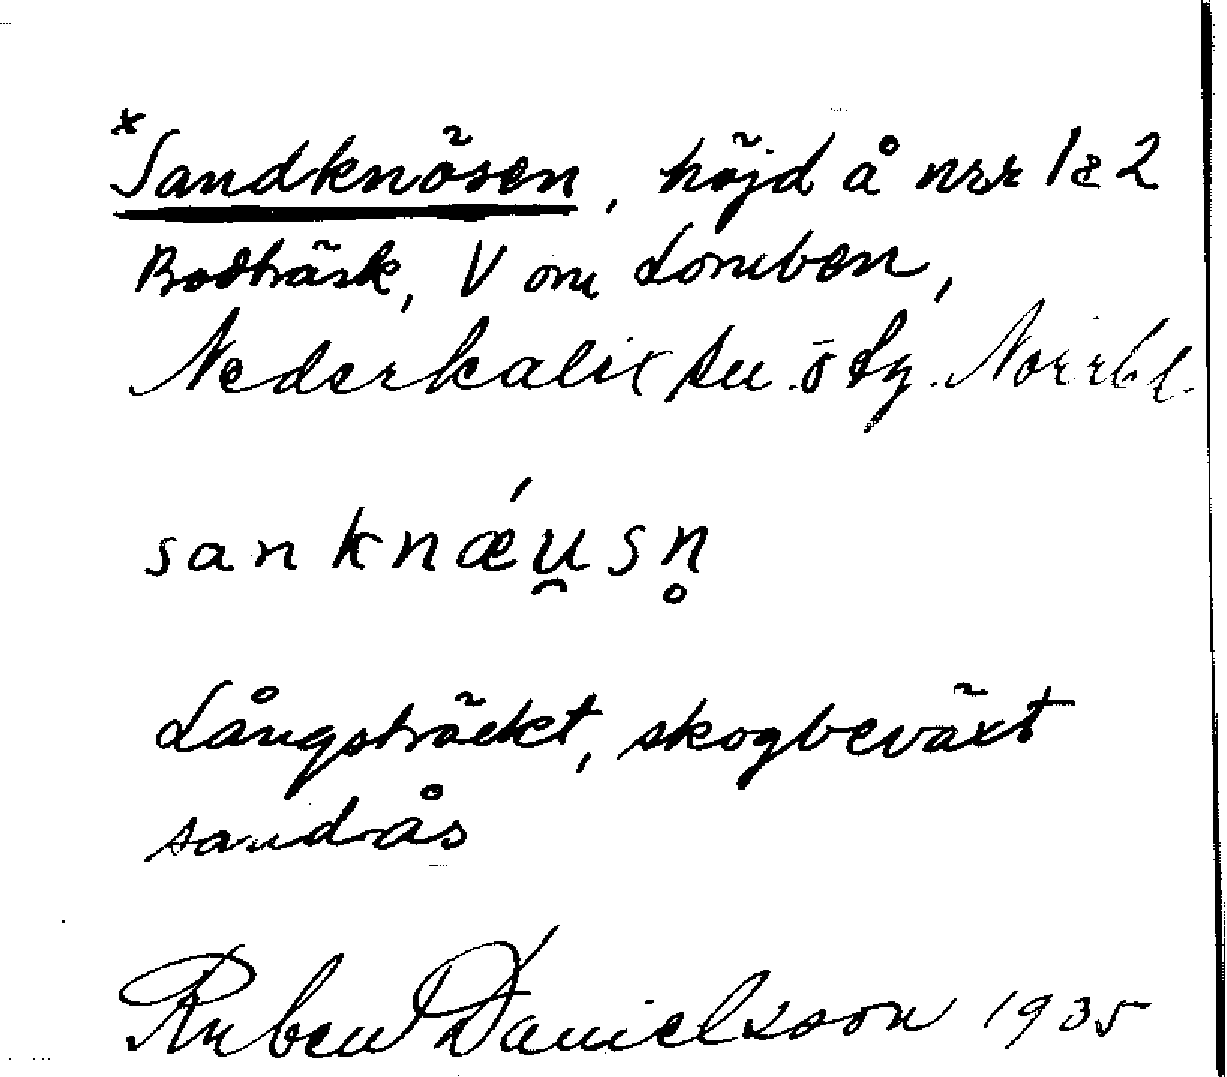 *Sandknösen, höjd å nrr 1 & 2
Bodträsk, V om Lomben,
Nederkalix sn ö tg. Norrb l.
sanknǽu̯sn̥
Långsträckt, skogbeväxt
sandås
Ruben Danielsson 1935